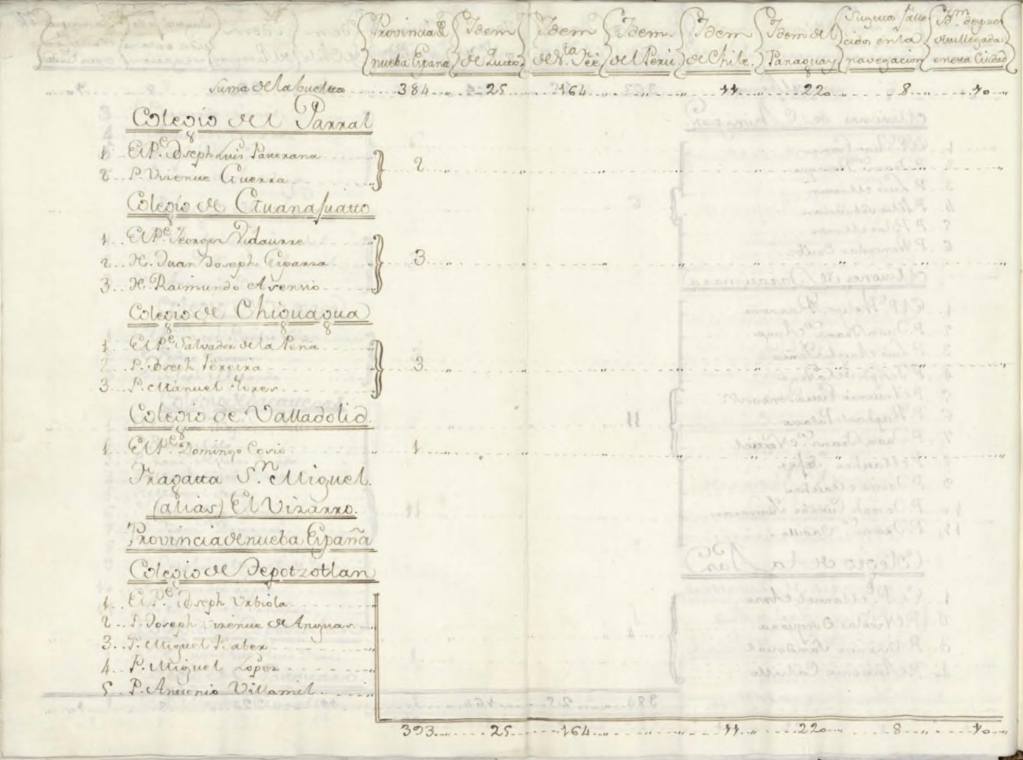 Provincia de nueba España
Idem de Quito
Idem de Sta. Fée
Idem del Perú
Idem de Chile
Idem del Paraguay
Sugetos falle cidos en la navegacion
Idm. despues de su llegada en esta Ciudad
Suma de la buelta 384 25 164 " 11 22 8 10
Colegio del Parral
1 El Pe. Joseph Luis
2 P. Vizente Guerra 2
Colegio de Guanajuatto
1 El Pe. Jorge Vidaurre
2 H. Juan Joseph Esparza 3
3 H. Raimundo Asensio
Colegio de Chiguagua
1 El Pe. Salvador de la Peña
2 P. Joseph Pereira 3
3 P. Manuel Flores
Colegio de Valladolid
1 El Pe. Domingo Cosio 1
Fragatta Sn. Miguel
(alias) El Vizarro.
Provincia de nueba España
Colegio de Tepotzotlan
1 El Pe. Joseph Urbiola
2 P. Joseph Vizente de Anguas
3 P. Miguel
4 P. Miguel Lopez
5 P. Antonio Villamel
393 25 164 " 11 22 8 10